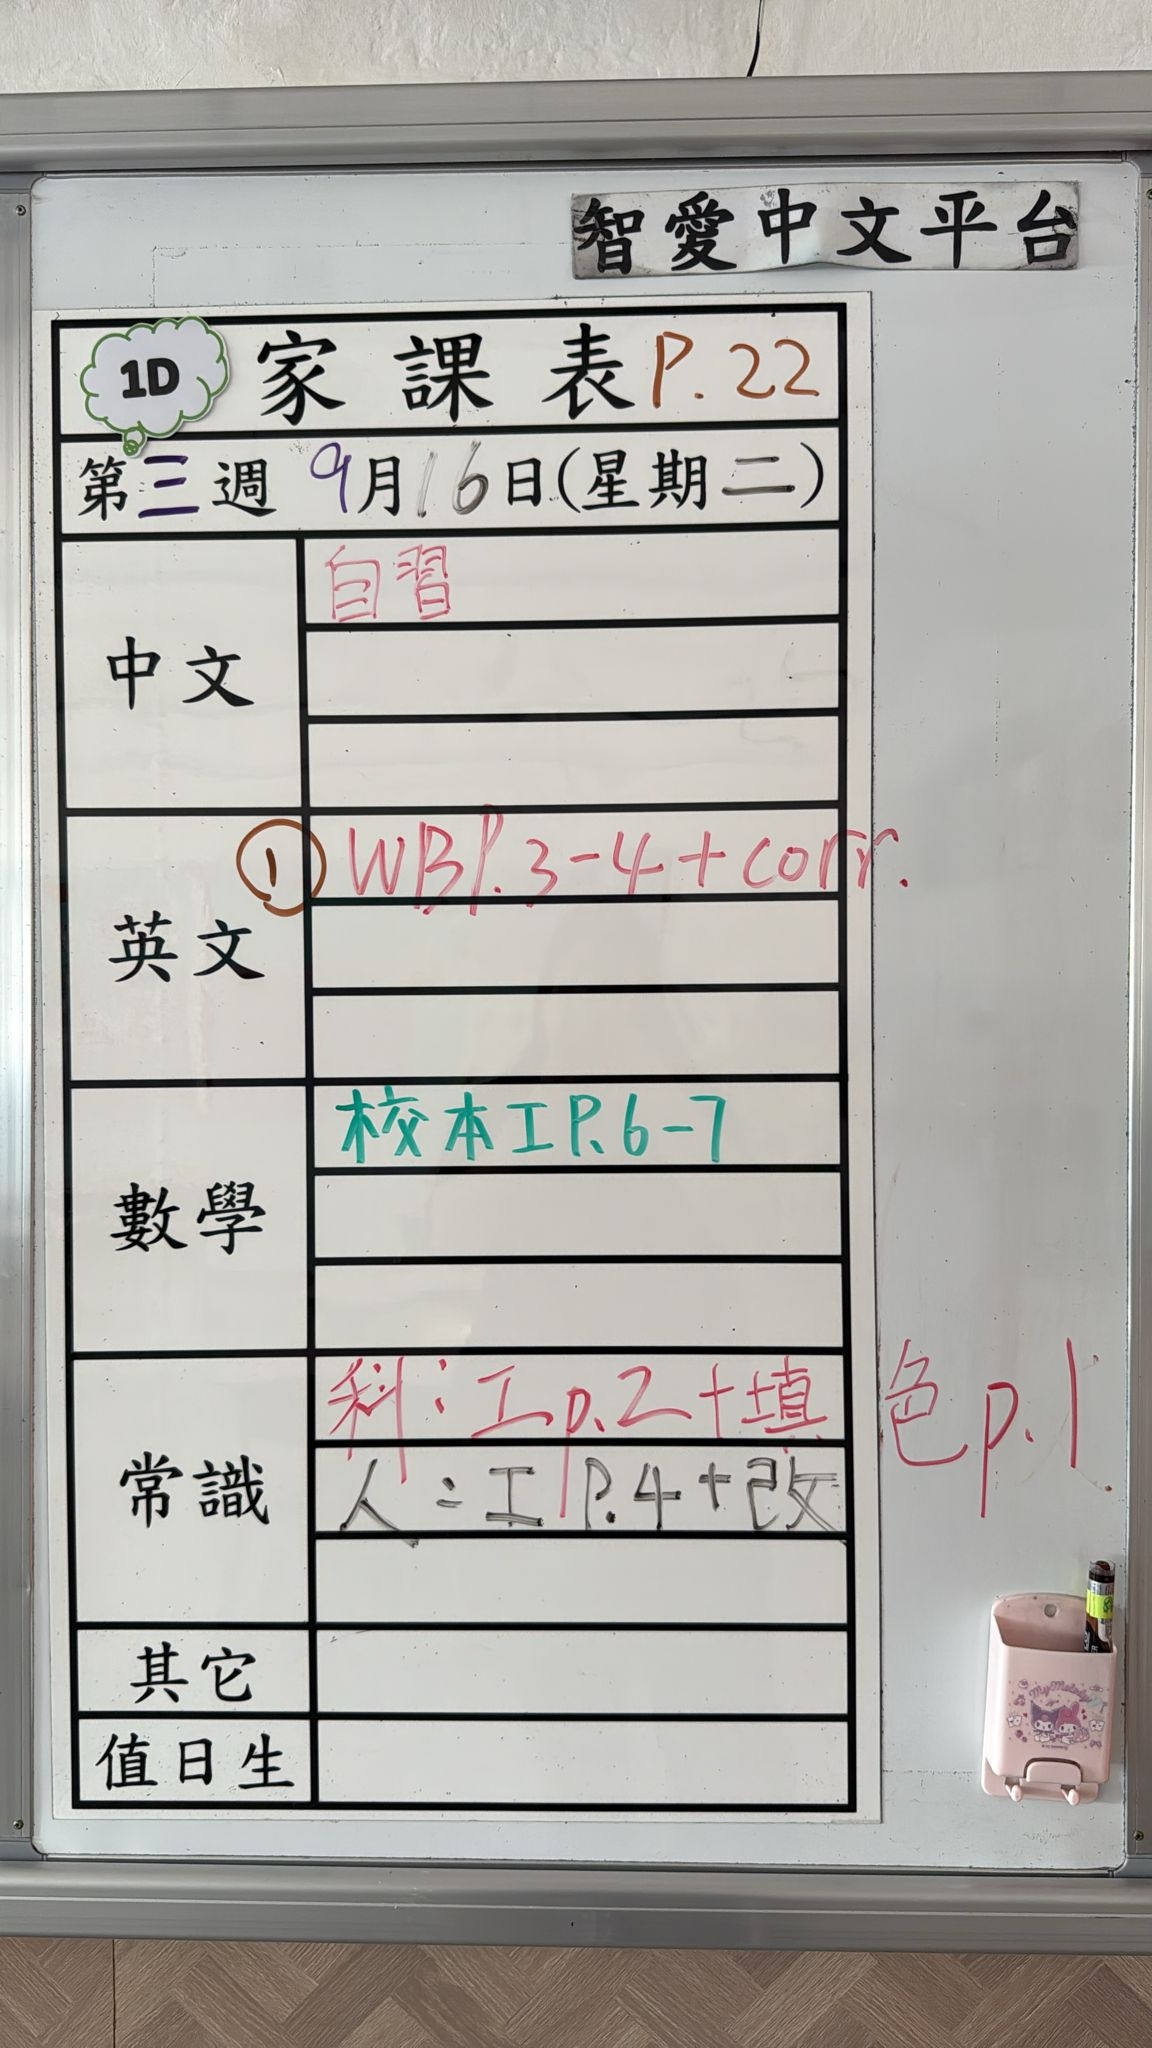 智愛中文平台
1D 家課表 P.22
第三週 9月16日(星期二)
中文
自習
英文
① WB P.3-4 + corr.
數學
校本工 P.6-7
常識
科：工 p.2+填色 p.1
人：工 P.4+改
其它
值日生
My Melody